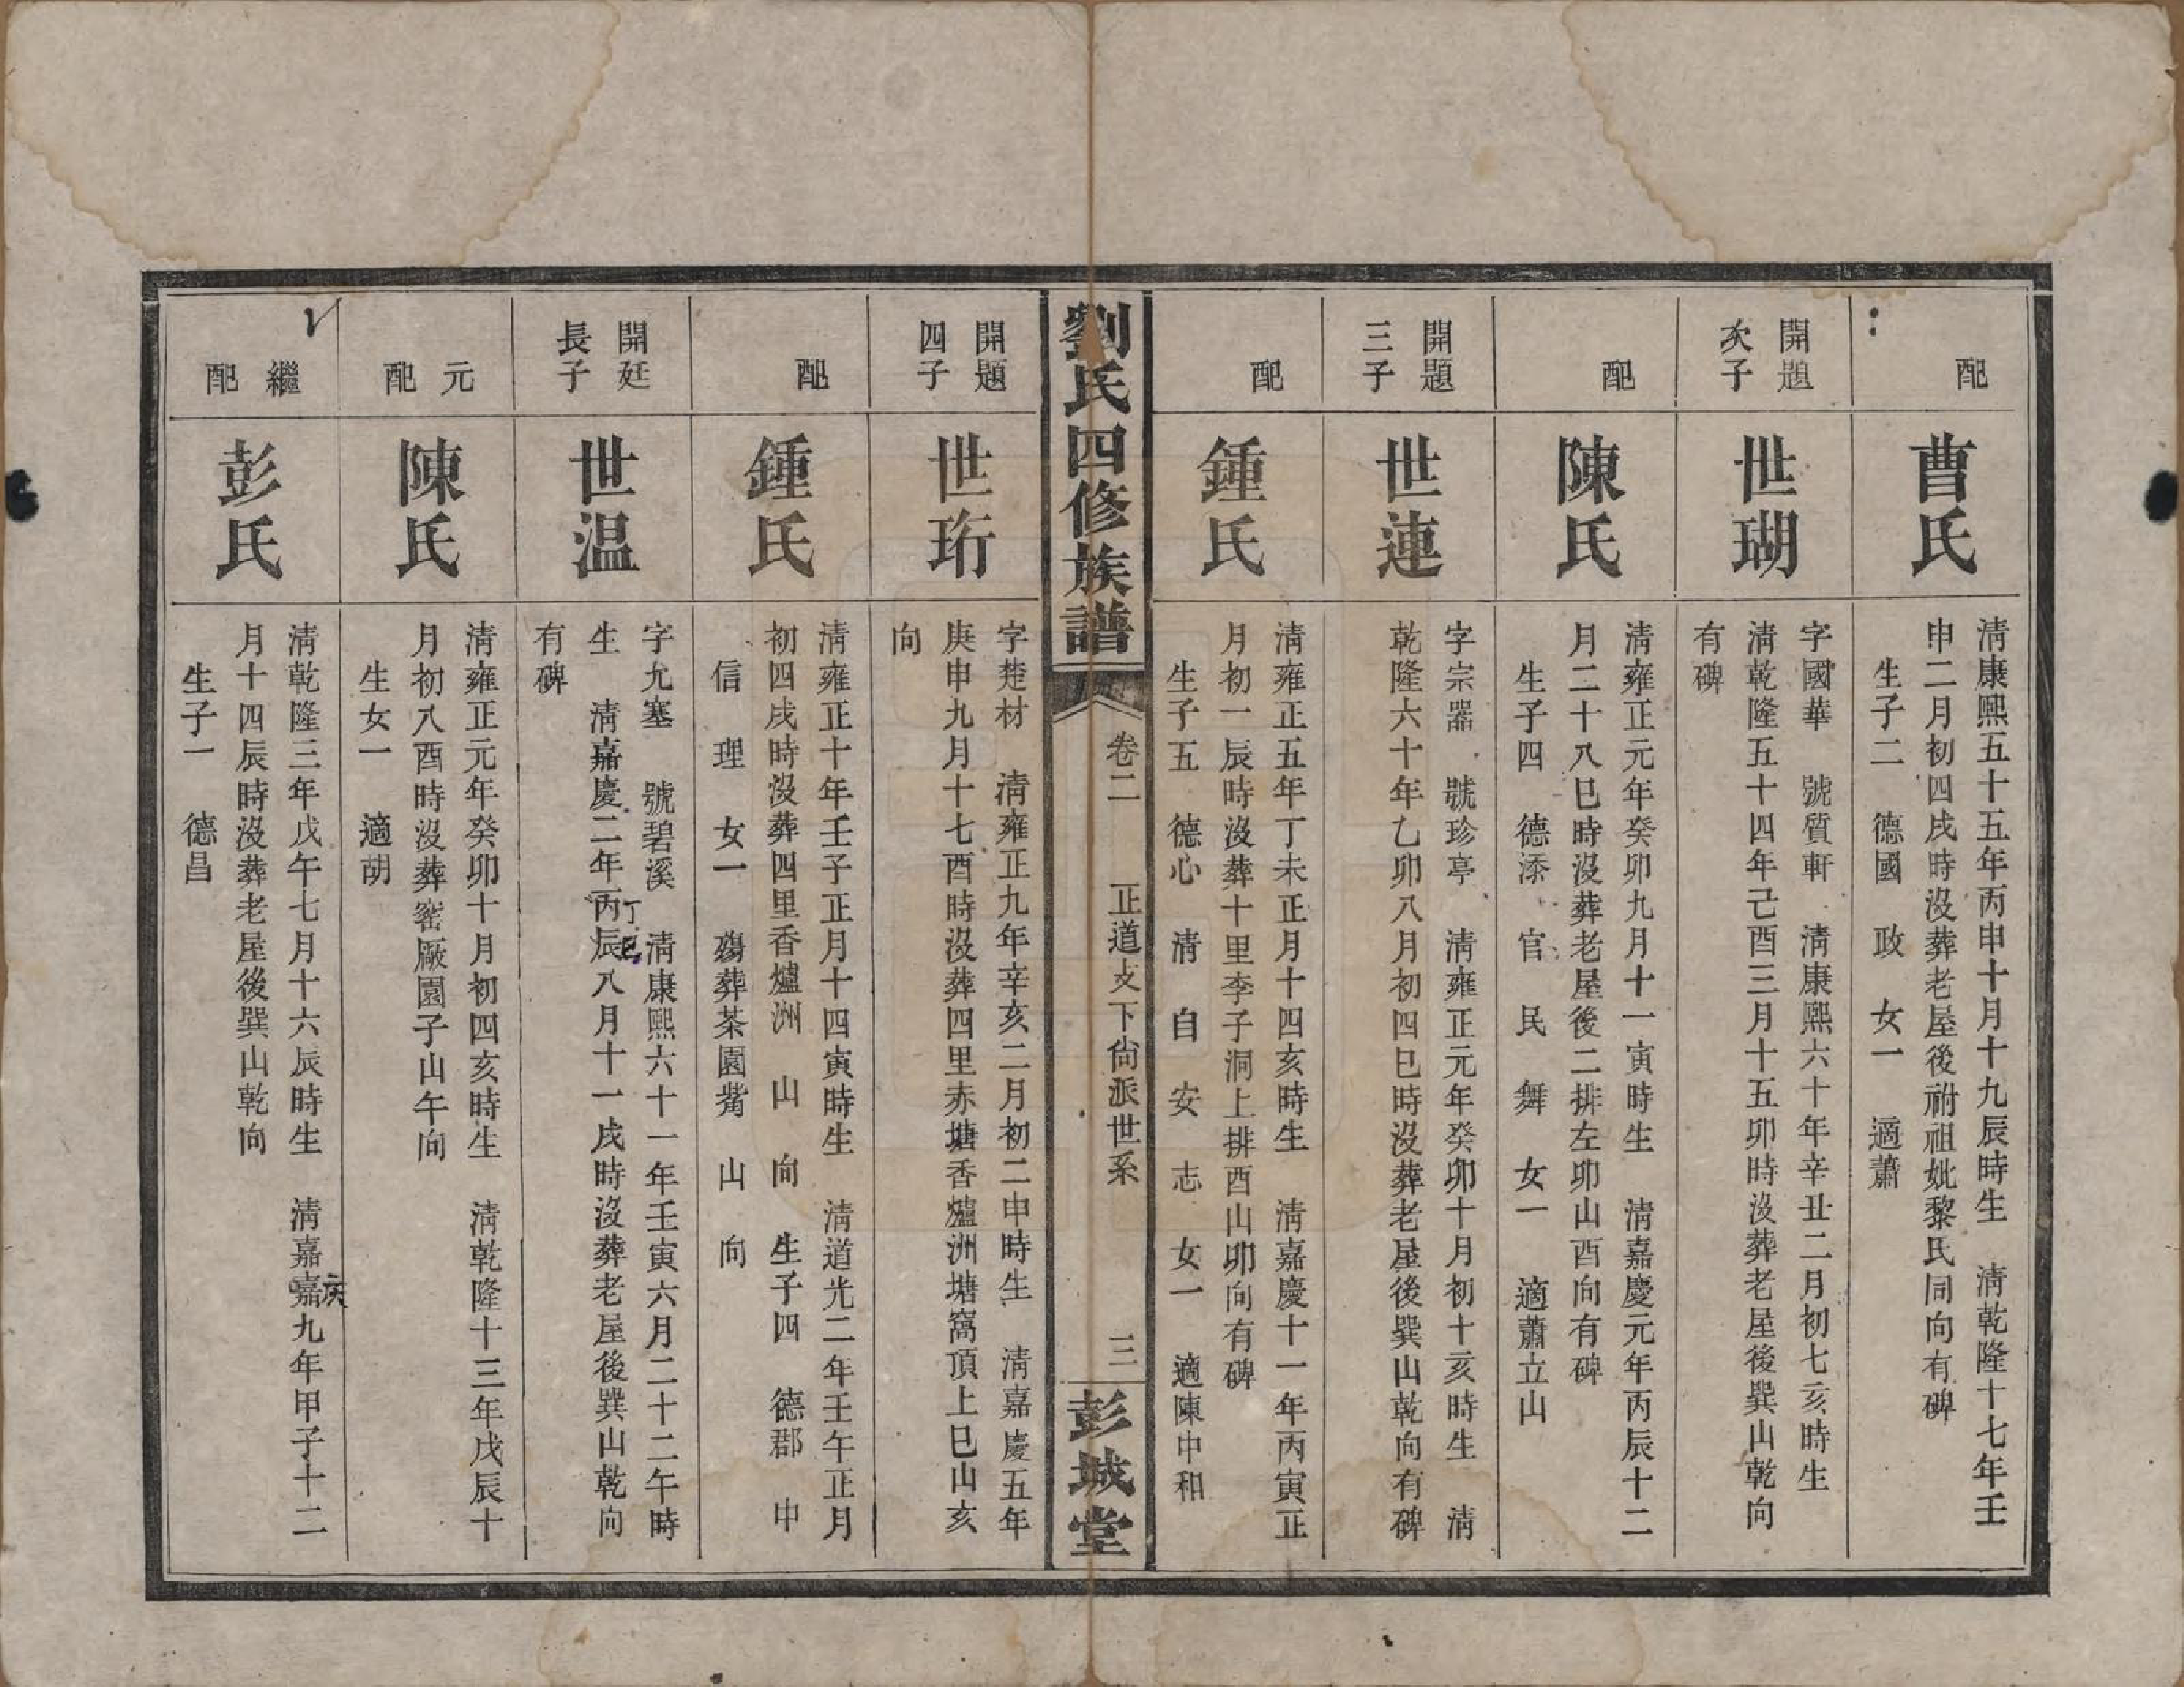 配
曹氏
清康熙五十五年丙申十月十九辰時生　清乾隆十七年壬
申二月初四戌時沒葬老屋後祔祖妣黎氏同向有碑
生子二　德國　政　女一　適蕭
開題
次子
世瑚
字國華　號質軒　清康熙六十年辛丑二月初七亥時生
清乾隆五十四年己酉三月十五卯時沒葬老屋後巽山乾向
有碑
配
陳氏
清雍正元年癸卯九月十一寅時生　清嘉慶元年丙辰十二
月二十八巳時沒葬老屋後二排左卯山酉向有碑
生子四　德添　官　民　舞　女一　適蕭立山
開題
三子
世連
字宗器　號珍亭　清雍正元年癸卯十月初十亥時生　清
乾隆六十年乙卯八月初四巳時沒葬老屋後巽山乾向有碑
配
鍾氏
清雍正五年丁未正月十四亥時生　清嘉慶十一年丙寅正
月初一辰時沒葬十里李子洞上排酉山卯向有碑
生子五　德心　清　自　安　志　女一　適陳中和
劉氏四修族譜
卷二　正道支下尙派世系　三
彭城堂
開題
四子
世珩
字楚材　清雍正九年辛亥二月初二申時生　清嘉慶五年
庚申九月十七酉時沒葬四里赤塘香爐洲塘窩頂上巳山亥
向
配
鍾氏
清雍正十年壬子正月十四寅時生　清道光二年壬午正月
初四戌時沒葬四里香爐洲　山　向　生子四　德郡　中
信　理　女一　殤葬茶園嘴　山　向
開廷
長子
世温
字尤塞　號碧溪　清康熙六十一年壬寅六月二十二午時
生　清嘉慶二年丙辰八月十一戌時沒葬老屋後巽山乾向
丁巳
有碑
元
配
陳氏
清雍正元年癸卯十月初四亥時生　清乾隆十三年戊辰十
月初八酉時沒葬窰厰園子山午向
生女一　適胡
繼
配
彭氏
清乾隆三年戊午七月十六辰時生　清嘉嘉九年甲子十二
月十四辰時沒葬老屋後巽山乾向
生子一　德昌